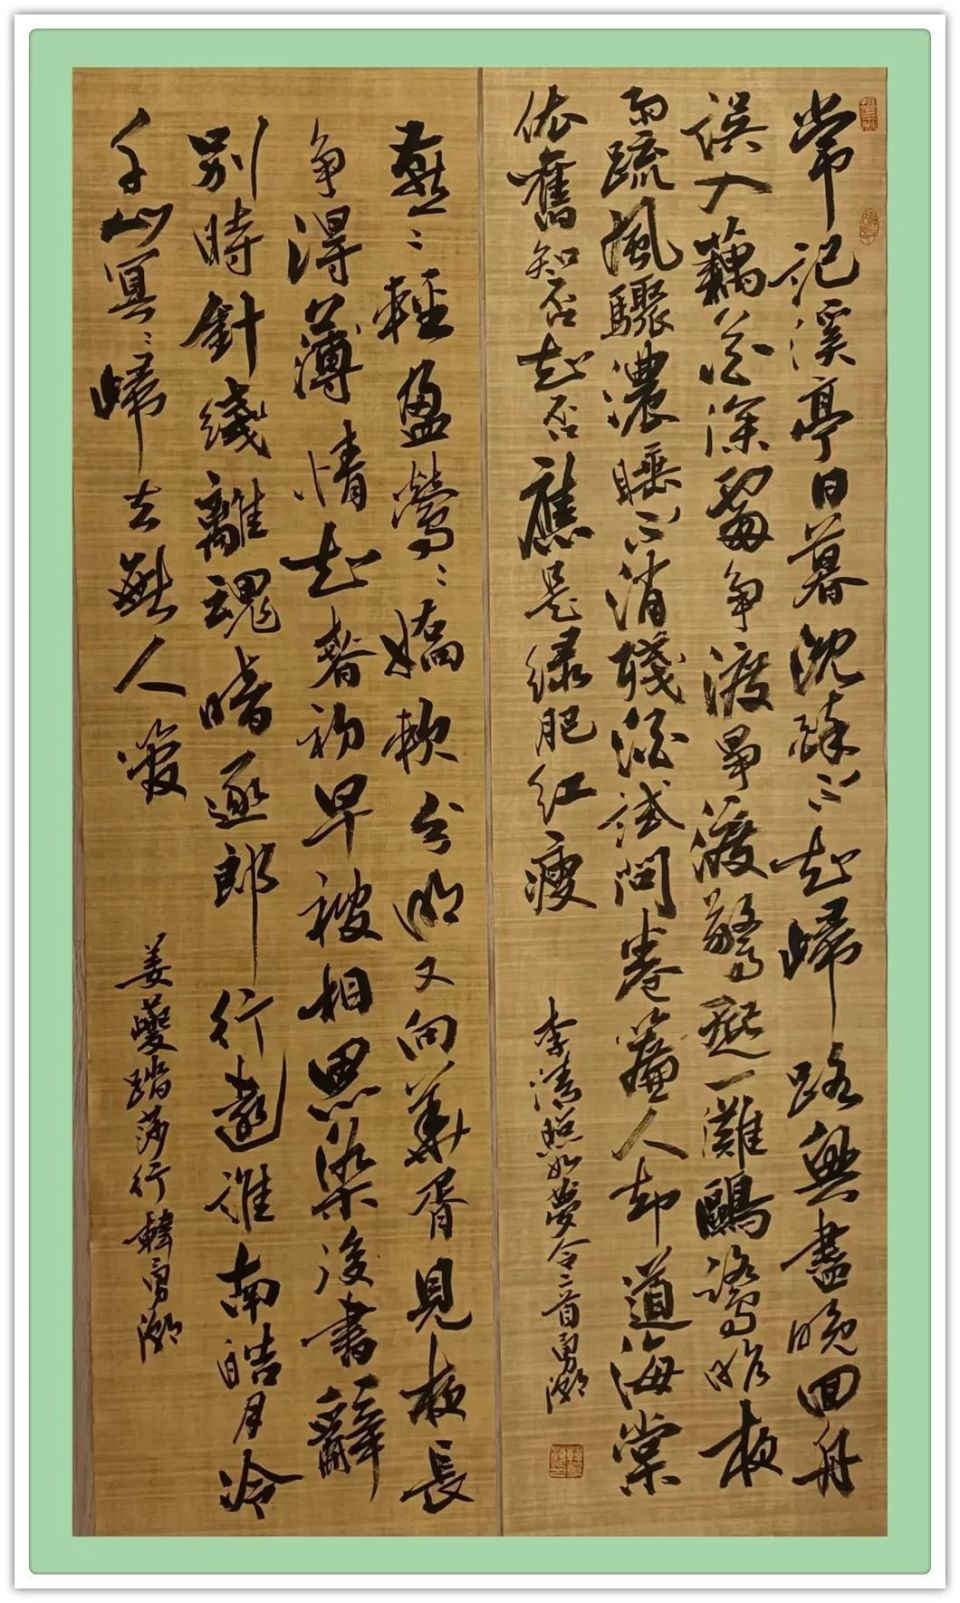 常記溪亭日暮沈醉不知歸路興盡晚回舟
誤入藕花深處争渡争渡驚起一灘鷗鷺昨夜
雨疏風驟濃睡不消殘酒試問卷簾人却道海棠
依舊知否知否應是綠肥紅瘦
李清照如夢令二首勇潮
燕〻輕盈鶯〻嬌軟分明又向華胥見夜長
争得薄情知春初早被相思染後書辭
別時針綫離魂暗逐郎行遠淮南皓月冷
千山冥〻歸去無人管
姜夔踏莎行韓勇潮